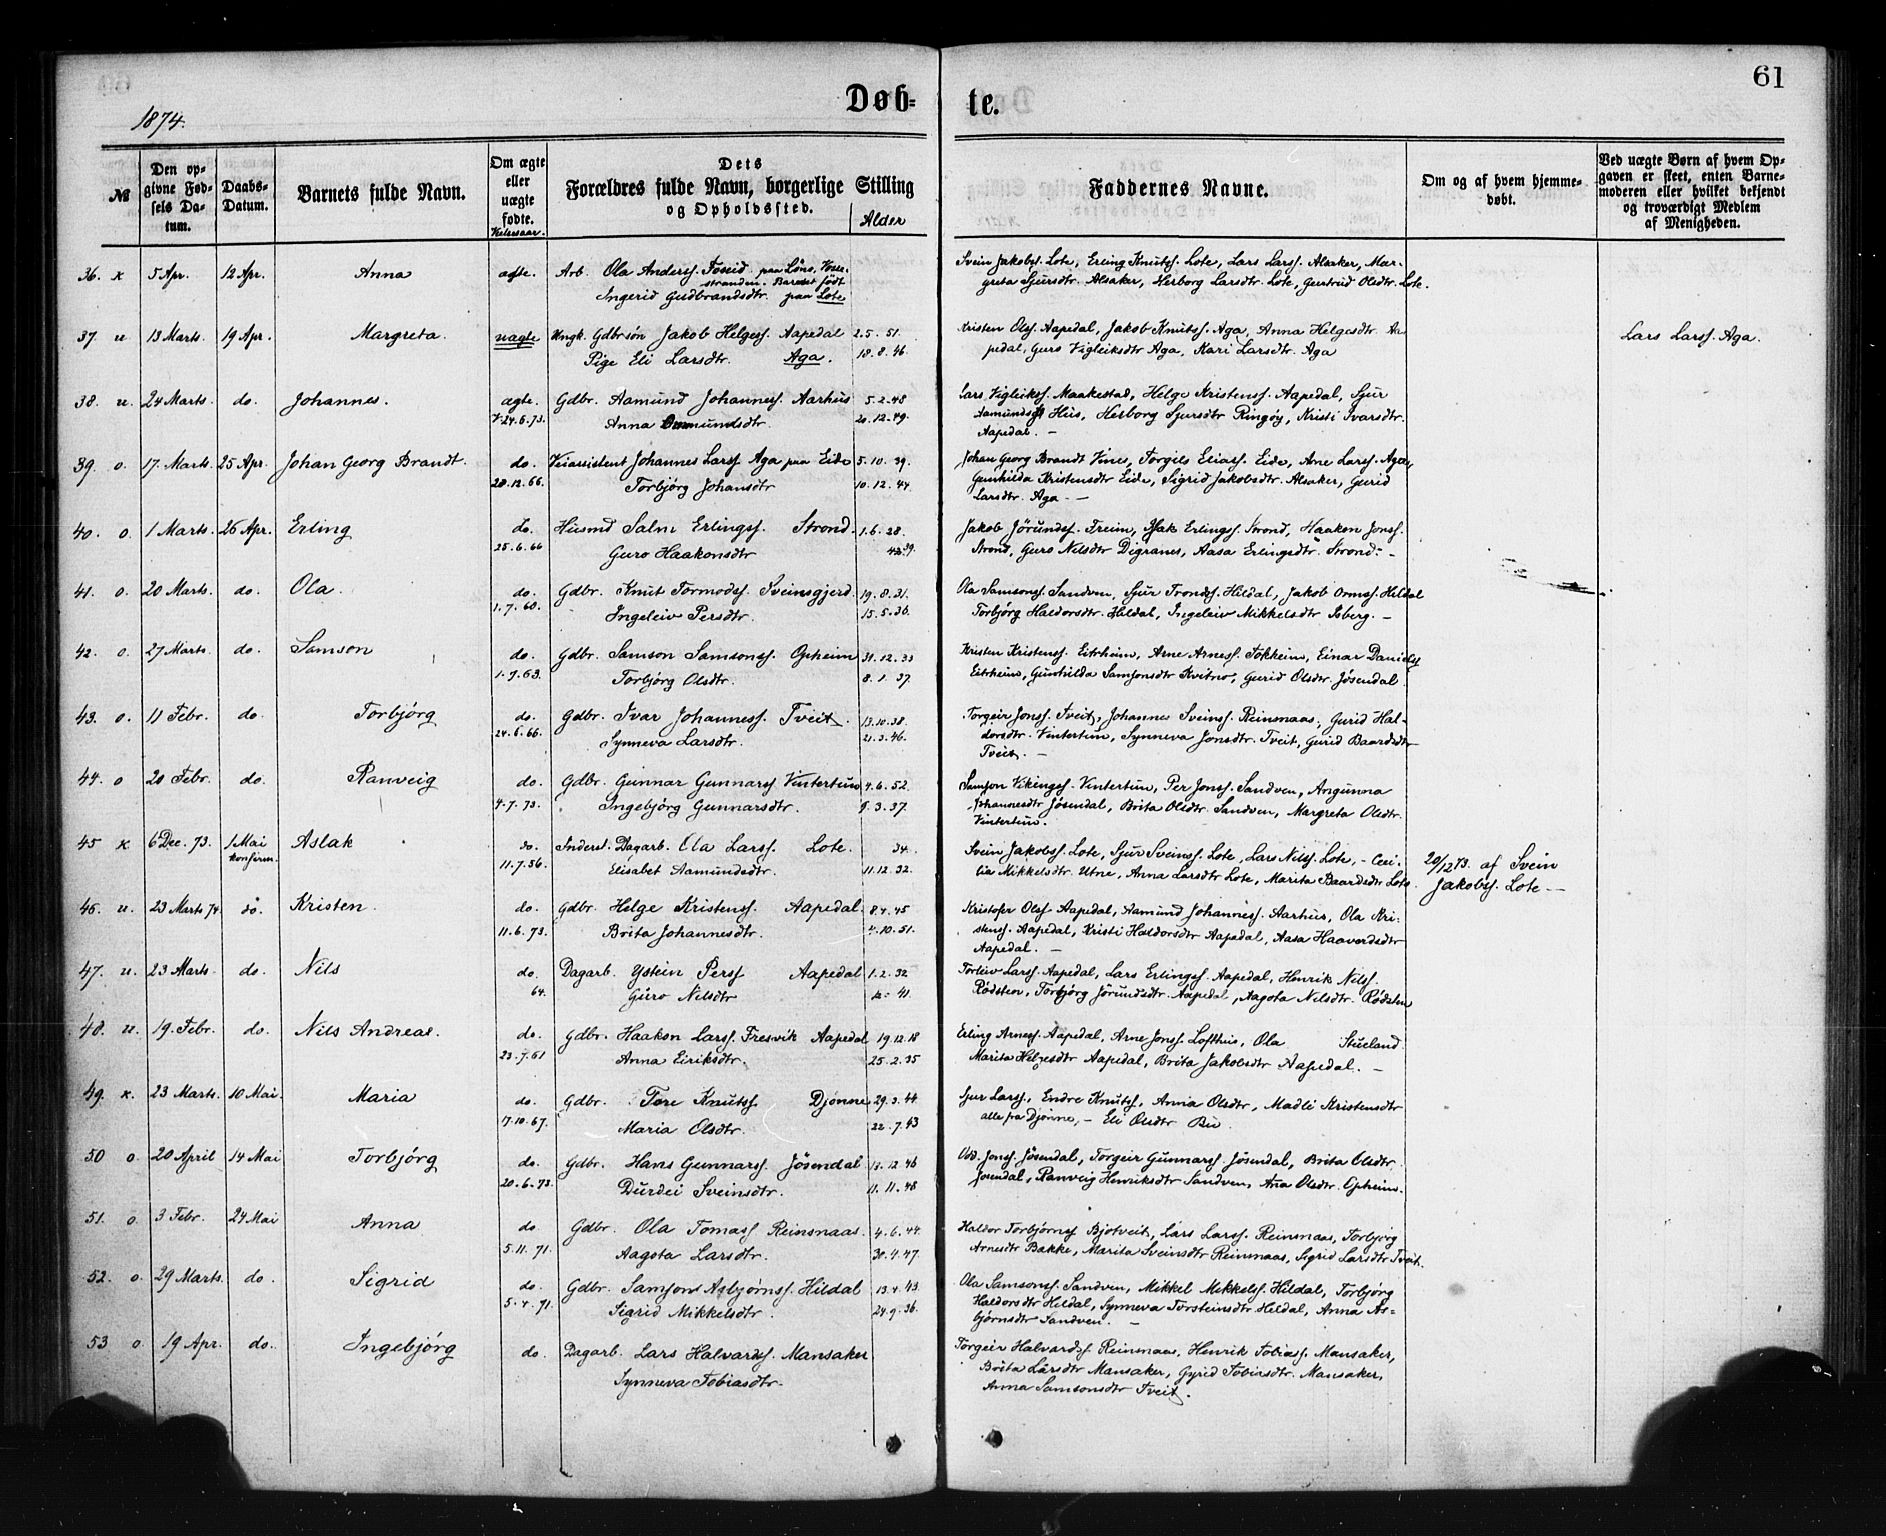 61
Døb= te.
1874.
№
Den op-
givne Fød-
sels Da-
tum.
Daabs-
Datum.
Barnets fulde Navn.
Om ægte
eller
uægte
fødte.
Vielsesaar.
Dets
Forældres fulde Navn, borgerlige Stilling
og Opholdssted.
Alder
Faddernes Navne.
Om og af hvem hjemme-
døbt.
Ved uægte Børn af hvem Op-
gaven er skeet, enten Barne-
moderen eller hvilket bekjendt
og troværdigt Medlem
af Menigheden.
36. k 5 Apr. 12 Apr. Anna ægte. Arb. Ola Anderss. Foseid paa Løno, Vosse-
stranden. Barnet født
Ingerid Gudbrandsdtr. paa Lote
Svein Jakobs. Lote, Erling Knutss. Lote, Lars Larss. Alsaker, Mar-
greta Sjursdtr. Alsaker, Herborg Larsdtr. Lote, Gertrud Olsdtr. Lote.
37. u 13 Marts. 19 Apr. Margreta. uægte Ungk. Gdbrsøn Jakob Helgess. Aapedal 2.5.51.
Pige Eli Larsdtr. Aga. 18.8.46.
Kristen Olss. Aapedal, Jakob Knutss. Aga, Anna Helgesdtr. Aa-
pedal, Guro Vigleiksdtr Aga, Kari Larsdtr. Aga
Lars Larss. Aga.
38. u. 24 Marts. do. Johannes. ægte. Gdbr. Aamund Johanness. Aarhus 5.2.48
V. 24.6.73. Anna Omundsdtr. 20.12.49.
Lars Vigleikss. Maakestad, Helge Kristenss. Aapedal, Sjur
Aamundss Hus, Herborg Sjursdtr Ringøy, Kristi Ivarsdtr.
Aapedal. —
39. o. 17 Marts. 25 Apr. Johan Georg Brandt. do. Veiassistent Johannes Larss Aga paa Eide 5.10.39.
20.12.66. Torbjørg Johansdtr 10.12.44.
Johan Georg Brandt Vine, Torgils Eliass. Eide, Arne Larss. Aga,
Gunhilda Kristensdtr Eide, Sigrid Jakobsdtr. Alsaker, Gurid
Larsdtr. Aga. —
40. o. 1 Marts. 26 Apr. Erling do. Husmd Salm Erlingss. Strond. 1.6.28.
25.6.66 Guro Haakonsdtr 39.
Jakob Jørundss. Freim, Isak Erlingss. Strond, Haakon Jonss.
Strond, Guro Nilsdtr Digranes, Aasa Erlingsdtr. Strond. —
41. o. 20 Marts. do. Ola. do. Gdbr. Knut Tormodss. Sveinsgjerd. 19.8.31.
1.7.60. Ingeleiv Persdtr. 15.5.36.
Ola Samsonss. Sandven, Sjur Tronds. Hildal, Jakob Ormss. Hildal
Torbjørg Haldorsdtr. Hildal, Ingeleiv Mikkelsdtr Isberg. —
42. o. 27 Marts. do. Samson do. Gdbr. Samson Samsonss. Opheim 31.12.33
1.7.63. Torbjørg Olsdtr. 8.1.37.
Kristen Kristenss. Eitrheim, Arne Arness. Tokheim, Einar Daniels
Eitrheim, Gunhilda Samsonsdtr Kvitno, Gurid Olsdtr. Jøsendal
43. o. 11 Febr. do Torbjørg do. Gdbr. Ivar Johanness. Tveit. 13.10.38.
24.6.66. Synneva Larsdtr. 21.3.46.
Torgeir Jonss. Tveit, Johannes Sveinss. Reinsnaas, Gurid Hal-
dorsdtr. Vintertun, Synneva Jonsdtr. Tveit, Gurid Baardsdtr
Tveit. —
44. o 20 Febr. do. Ranveig do. Gdbr. Gunnar Gunnarss Vintertun 4.6.52.
4.7.73. Ingebjørg Gunnarsdtr. 9.3.37.
Samson Vikingss. Vintertun, Per Jonss. Sandven, Angunna
Johannesdtr Jøsendal, Brita Olsdtr. Sandven, Margreta Olsdtr.
Vintertun.
45 k 6 Dec. 73. 1 Mai Aslak do. Inderst. Dagarb. Ola Larss. Lote. 34.
konfirm. 11.7.56. Elisabet Aamundsdtr. 11.12.32.
Svein Jakobss. Lote, Sjur Sveinss. Lote, Lars Nilss. Lote, - Ceci-
lia Mikkelsdtr. Utne, Anna Larsdtr Lote, Marita Baardsdtr Lote.
20/12 73. af Svein
Jakobs. Lote —
46. u. 23 Marts 74. do. Kristen. do. Gdbr. Helge Kristenss. Aapedal. 8.4.45
11.6.73. Brita Johannesdtr. 4.10.51.
Kristofer Olss Aapedal, Aamund Johanness. Aarhus, Ola Kri-
stenss. Aapedal, Kristi Haldorsdtr Aapedal, Aasa Haaverdsdtr
Aapedal. —
47. u. 23 Marts. do. Nils do. Dagarb. Ystein Perss Aapedal 1.2.32
64. Guro Nilsdtr 12.41.
Torleiv Larss. Aapedal, Lars Erlingss. Aapedal, Henrik Nilss.
Rødsten, Torbjørg Jørundsdtr Aapedal, Aagota Nilsdtr. Rødsten
48. u. 19. Febr. do. Nils Andreas. do. Gdbr. Haakon Larss. Fresvik Aapedal 19.12.18
23.7.61 Anna Eiriksdtr. 25.2.35
Erling Arness. Aapedal, Arne Jonss. Lofthus, Ola Stueland.
Marita Helgesdtr Aapedal, Brita Jakobsdtr Aapedal. —
49. k. 23 Marts. 10 Mai. Maria do. Gdbr. Tore Knutss Djønne 29.3.44
17.10.67. Maria Olsdtr. 22.7.43
Sjur Larss., Endre Knutss., Anna Olsdtr, Madli Kristensdtr
alle fra Djønne, - Eli Olsdtr Bu.
50 o. 20 April 14 Mai Torbjørg do. Gdbr. Hans Gunnarss. Jøsendal 17.12.46
20.6.73. Durdei Sveinsdtr. 11.11.48
Odd. Jonss. Jøsendal, Torgeir Gunnarss. Jøsendal, Brita Olsdtr.
Jøsendal, Ranveig Henriksdtr Sandven, Ana Olsdtr. Opheim.
51. o. 3 Febr. 24 Mai Anna do Gdbr. Ola Tomass Reinsnaas. 4.6.44.
5.11.71. Aagota Larsdtr. 30.4.47.
Haldor Torbjørnss Bjotveit, Lars Larss. Reinsnaas, Torbjørg
Arnesdtr Bakke, Marita Sveinsdtr Reinsnaas, Sigrid Larsdtr Tveit.
52. o. 29 Marts. do. Sigrid do. Gdbr. Samson Asbjørnss. Hildal 13.4.43
5.4.71. Sigrid Mikkelsdtr. 24.9.36.
Ola Samsonss. Sandven, Mikkel Mikkelss. Hildal, Torbjørg
Haldorsdtr Hildal, Synneva Torsteinsdtr. Hildal, Anna As-
bjørnsdtr Sandven. —
53 o. 19 Apr. do. Ingebjørg do. Dagarb. Lars Halvardss. Mansaker
Synneva Tobiasdtr.
Torgeir Halvardss Reinsnaas, Henrik Tobiass. Mansaker,
Brita Larsdtr Mansaker, Gyrid Tobiasdtr. Mansaker,
Anna Samsonsdtr Tveit.